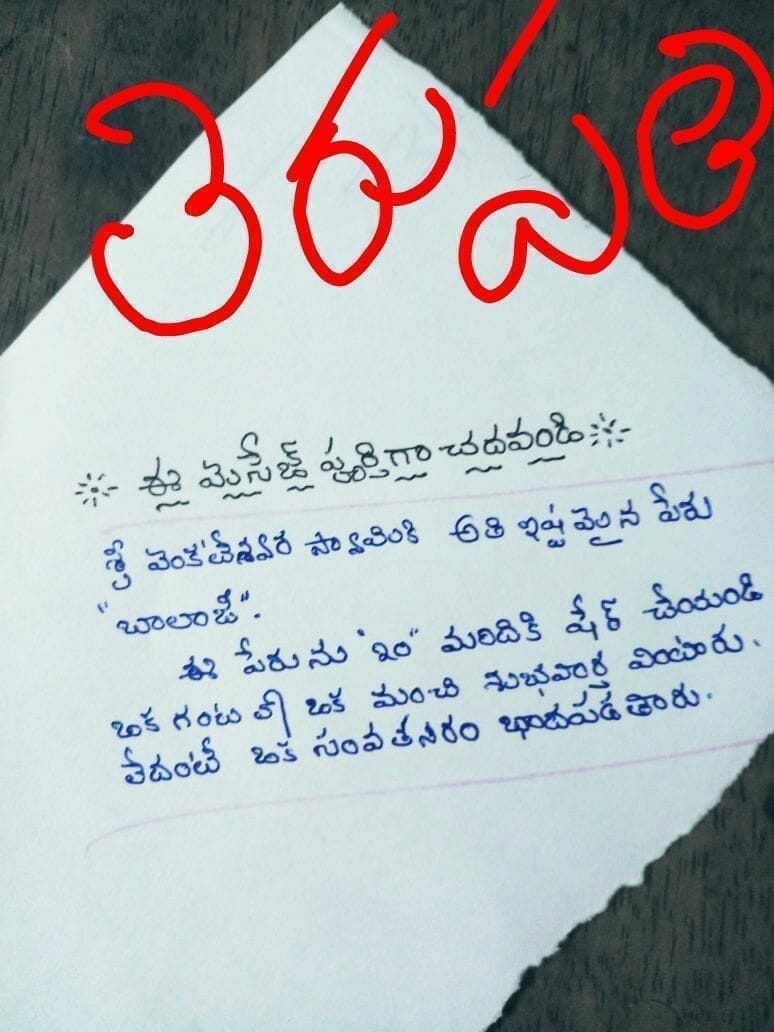 తిరుపతి
ఈ మెసేజ్ పూర్తిగా చదవండి
శ్రీ వెంకటేశ్వర స్వామికి అతి ఇష్టమైన పేరు
"బాలాజీ".
ఈ పేరును "౩౦" మందికి షేర్ చేయండి
ఒక గంటలో ఒక మంచి శుభవార్త వింటారు.
లేదంటే ఒక సంవత్సరం భాదపడతారు.